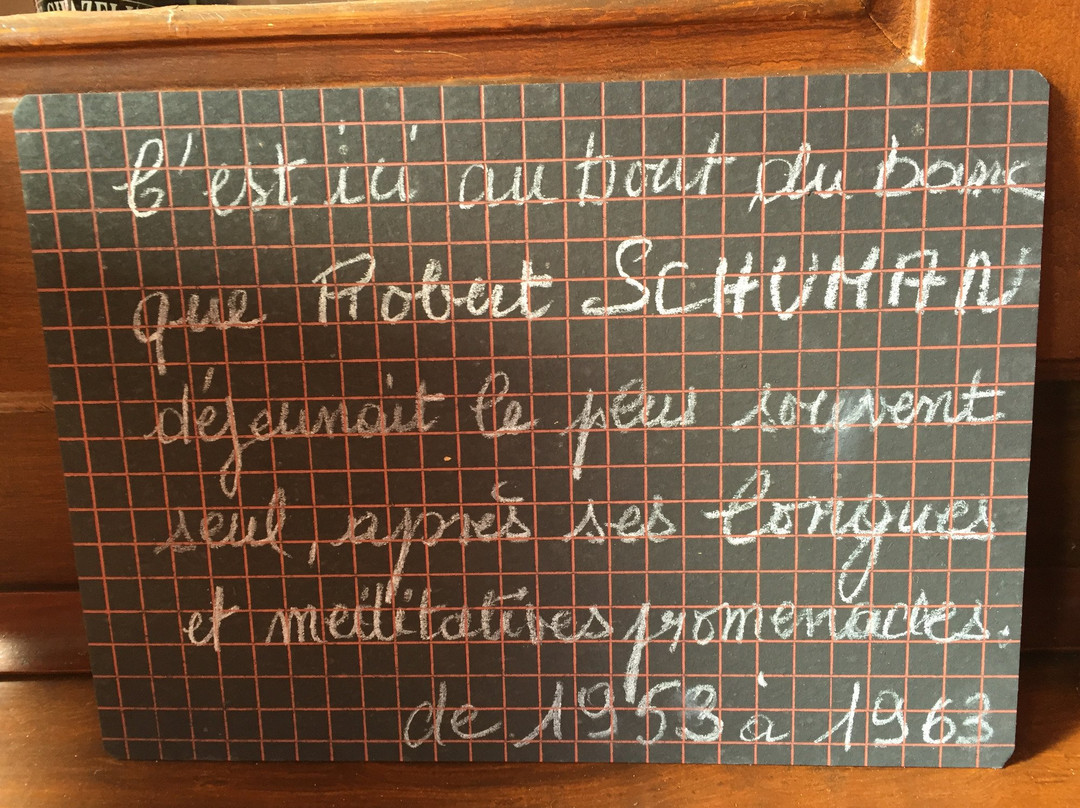 C'est ici au bout du banc
que Robert SCHUMAN
déjeunait le plus souvent
seul, après ses longues
et méditatives promenades.
de 1953 à 1963